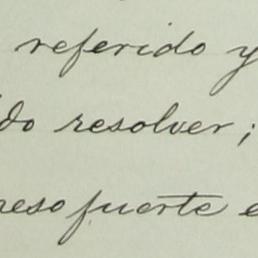 referido y
do resolver;
peso fuerte e